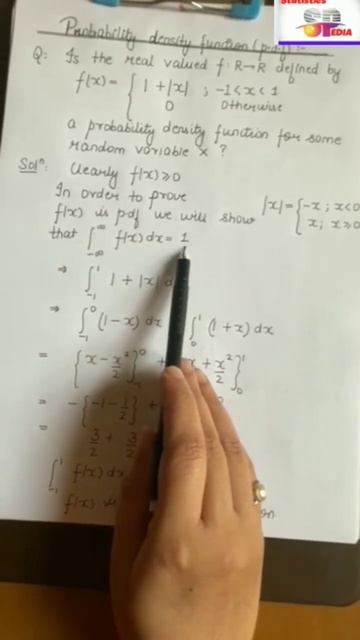 Statistics
PEDIA
Probability density function (p.d.f) :-
Q: Is the real valued f: R→R defined by
f(x) = { 1 + |x| ; -1 < x < 1
0 otherwise
a probability density function for some
random variable x ?
Solⁿ: Clearly f(x) ≥ 0
In order to prove
f(x) is pdf we will show
that ∫_{-∞}^{∞} f(x) dx = 1
|x| = { -x ; x<0
x ; x≥0
⇒ ∫_{-1}^{1} 1 + |x| d
⇒ ∫_{-1}^{0} (1-x) dx ∫_{0}^{1} (1+x) dx
= { x - x²/2 }_{-1}^{0} + x + x²/2 }_{0}^{1}
= - { -1 - 1/2 } +
= 3/2 + 3/2
∫_{-1}^{1} f(x) dx
f(x)